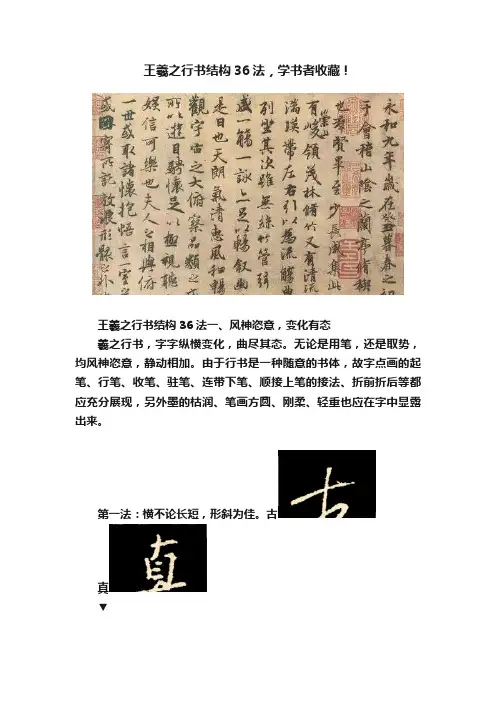 王羲之行书结构36法，学书者收藏！
永和九年歲在癸丑暮春之初
于會稽山陰之蘭亭脩禊
也羣賢畢至少長咸集此
有崇山峻領茂林脩竹又有清流
湍暎帶左右引以為流觴曲
列坐其次雖無絲竹管弦
盛一觴一詠亦足以暢敘幽
是日也天朗氣清惠風和暢
觀宇宙之大俯察品類之
所以遊目騁懷足以極視聽
娛信可樂也夫人之相與俯
一世或取諸懷抱悟言一室
或因寄所託放浪形骸之外
王羲之行书结构36法一、风神恣意，变化有态
羲之行书，字字纵横变化，曲尽其态。无论是用笔，还是取势，
均风神恣意，静动相加。由于行书是一种随意的书体，故字点画的起
笔、行笔、收笔、驻笔、连带下笔、顺接上笔的接法、折前折后等都
应充分展现，另外墨的枯润、笔画方圆、刚柔、轻重也应在字中显露
出来。
第一法：横不论长短，形斜为佳。古
古
真
直
▼